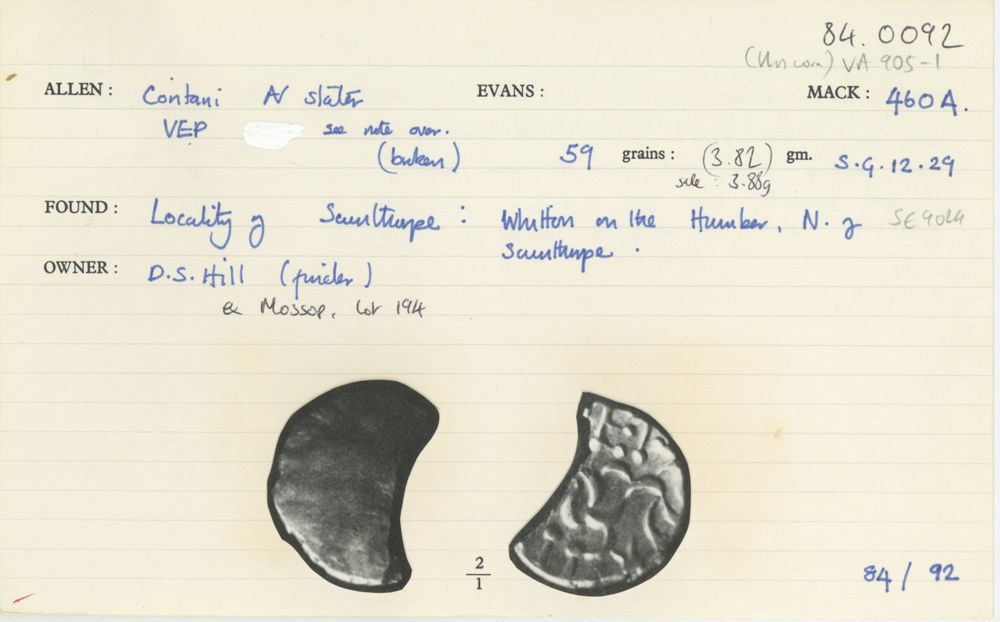 84.0092
(Unicorn) VA 905-1
ALLEN: Coritani AV stater EVANS: MACK: 460A.
VEP see note over.
(broken) 59 grains: (3.82) gm. S.G. 12.29
sale: 3.88g
FOUND: Locality of Scunthorpe: Whitton on the Humber, N. of SE9024
Scunthorpe.
OWNER: D.S. Hill (finder)
ex Mossop, lot 194
2
1
84 / 92